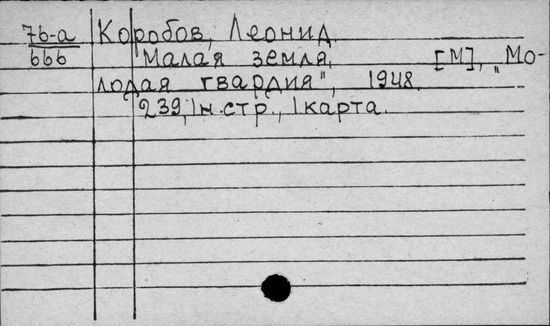 76-а Коробов, Леонид.
666 Малая земля. [М], „Мо-
лодая гвардия", 1948.
239, 1 н. стр., 1 карта.